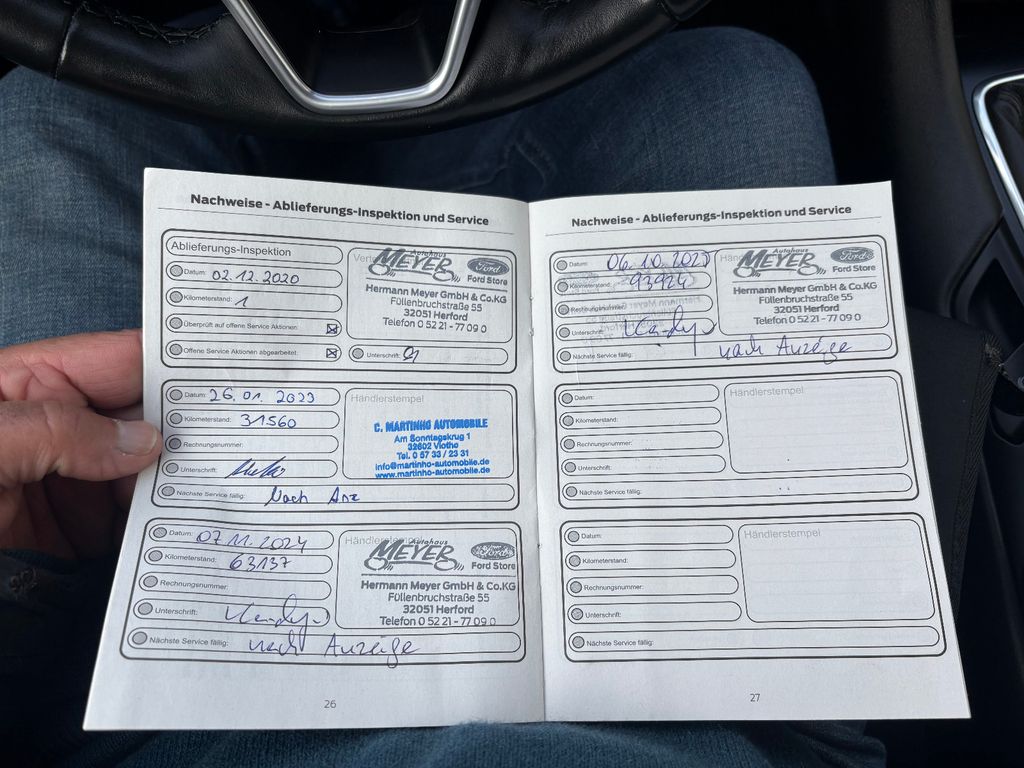 Nachweise - Ablieferungs-Inspektion und Service
Ablieferungs-Inspektion
Datum: 02.12.2020
Kilometerstand: 1
Überprüft auf offene Service Aktionen:
Offene Service Aktionen abgearbeitet:
Autohaus
MEYER
Ford
Ford Store
Hermann Meyer GmbH & Co.KG
Füllenbruchstraße 55
32051 Herford
Telefon 0 52 21 - 77 09 0
Unterschrift:
Datum: 26.01.2023
Kilometerstand: 31560
Rechnungsnummer:
Unterschrift:
Händlerstempel
C. MARTINHO AUTOMOBILE
Am Sonntagskrug 1
32602 Vlotho
Tel. 0 57 33 / 23 31
info@martinho-automobile.de
www.martinho-automobile.de
Nächste Service fällig: Nach Anz
Datum: 07.11.2024
Kilometerstand: 63137
Rechnungsnummer:
Unterschrift:
Händlerstempel
Autohaus
MEYER
Ford
Ford Store
Hermann Meyer GmbH & Co.KG
Füllenbruchstraße 55
32051 Herford
Telefon 0 52 21 - 77 09 0
Nächste Service fällig: nach Anzeige
26
Nachweise - Ablieferungs-Inspektion und Service
Datum: 06.10.2025
Kilometerstand: 93924
Rechnungsnummer:
Unterschrift:
Autohaus
MEYER
Ford
Ford Store
Hermann Meyer GmbH & Co.KG
Füllenbruchstraße 55
32051 Herford
Telefon 0 52 21 - 77 09 0
Nächste Service fällig: nach Anzeige
Datum:
Kilometerstand:
Rechnungsnummer:
Unterschrift:
Händlerstempel
Nächste Service fällig:
Datum:
Kilometerstand:
Rechnungsnummer:
Unterschrift:
Händlerstempel
Nächste Service fällig:
27